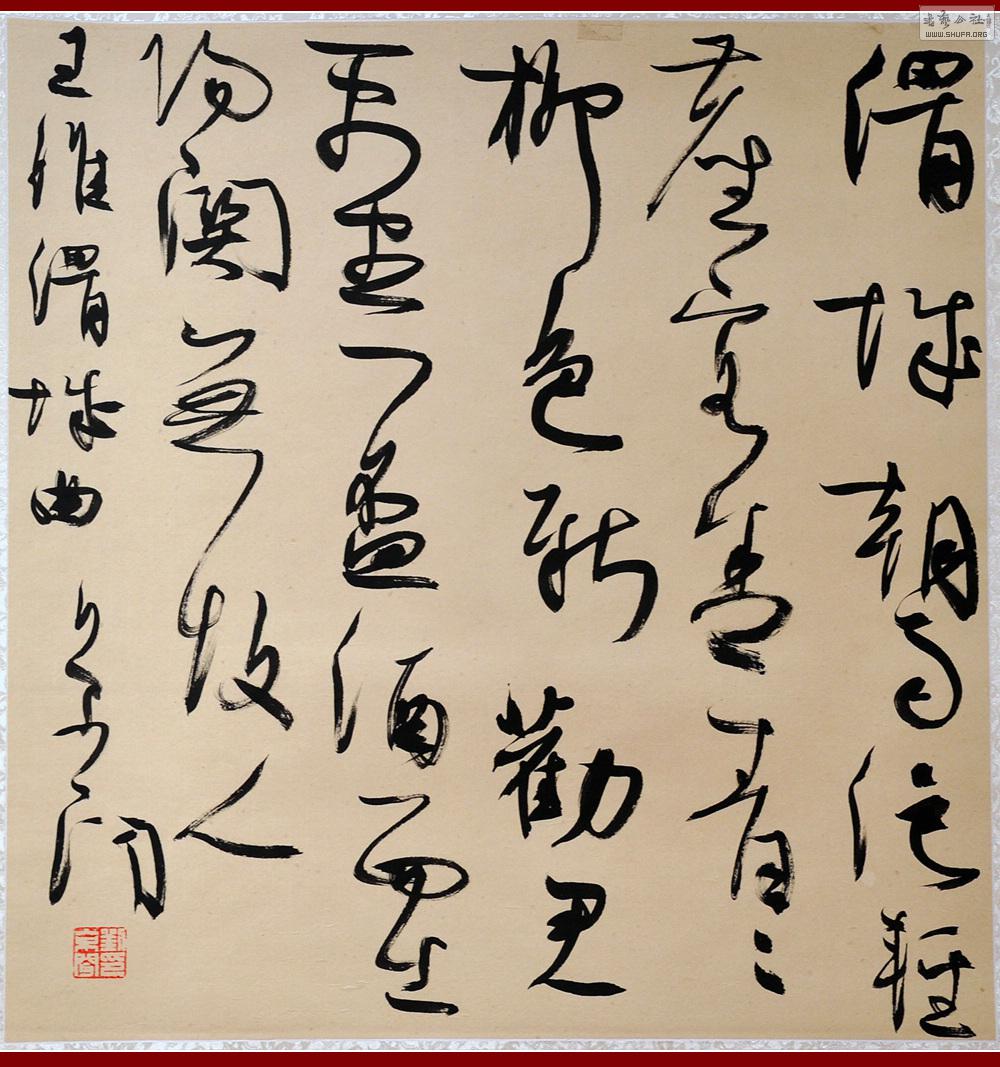 渭城朝雨浥輕
塵客舍青〻
柳色新勸君
更盡一盃酒西出
陽關無故人
王維渭城曲
书艺公社
WWW.SHUFA.ORG